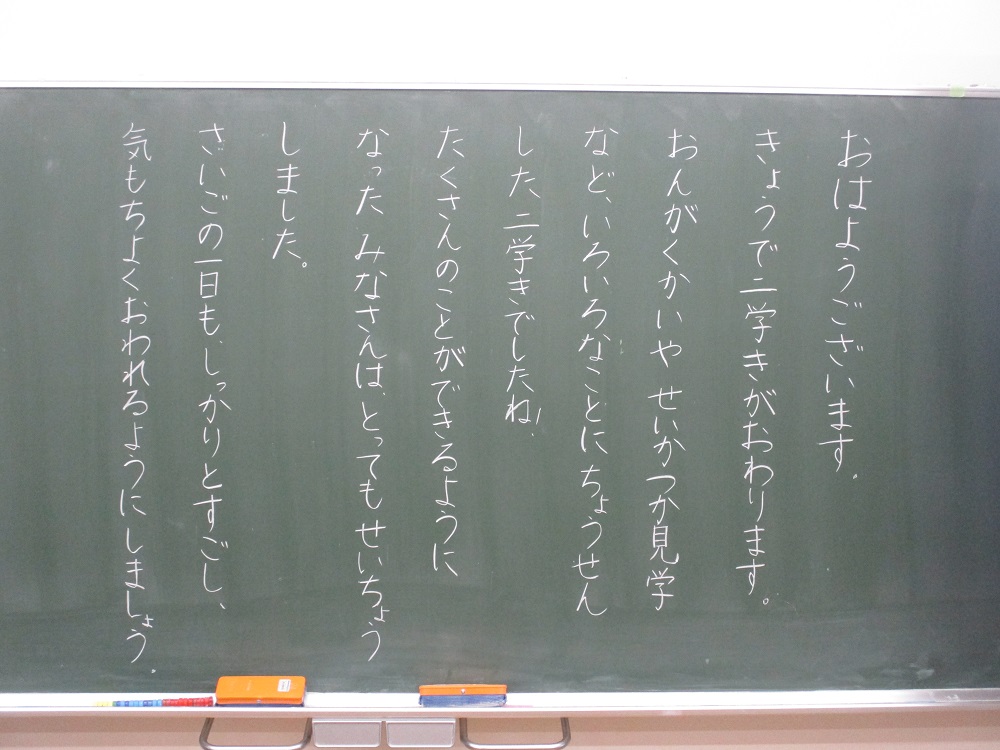 おはようございます。
きょうで二学きがおわります。
おんがくかいや せいかつか見学
など、いろいろなことにちょうせん
した、二学きでしたね。
たくさんのことができるように
なった みなさんは、とってもせいちょう
しました。
さいごの一日も、しっかりとすごし、
気もちよくおわれるようにしましょう。